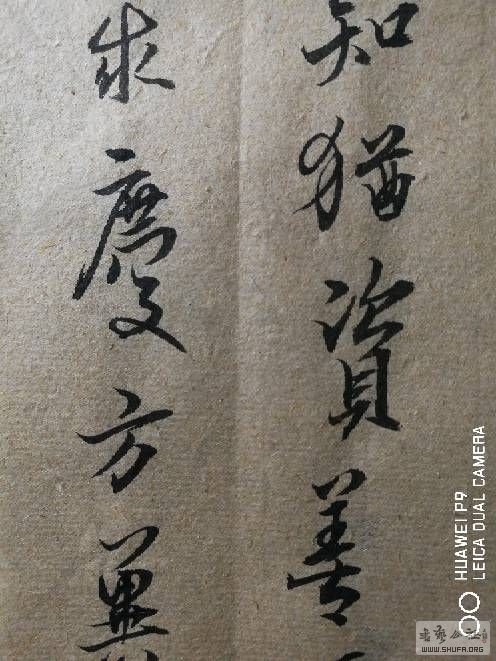 知猶資善
求慶方冀
HUAWEI P9
LEICA DUAL CAMERA
书艺公社
WWW.SHUFA.ORG